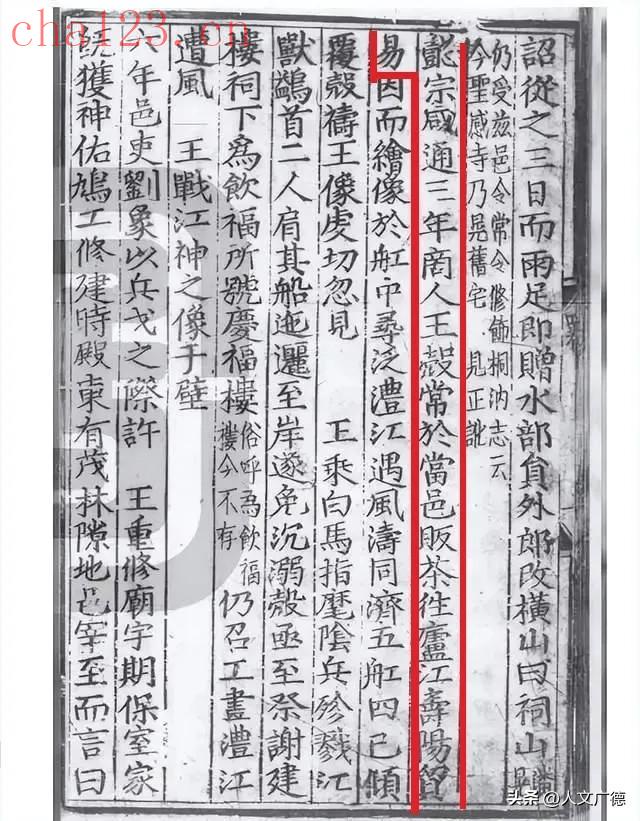 詔從之三日而雨足即贈水部貟外郎改横山曰祠山
仍受兹邑令常令修飾桐汭志云
今聖感寺乃晃舊宅 見正訛
懿宗咸通三年商人王殼常於當邑販茶徃廬江壽陽貿
易因而繪像於舡中尋泛澧江遇風濤同濟五舡四已傾
覆殼禱王像虔切忽見 王乘白馬指麾隂兵殄戮江
獸鷁首二人肩其船迤邐至岸遂免沉溺殼亟至祭謝建
樓祠下爲飲福所號慶福樓俗呼爲飲福樓今不存仍召工畫澧江
遭風 王戰江神之像于壁
六年邑吏劉象以兵戈之際許 王重修廟宇期保室家
既獲神佑鳩工修建時殿東有茂林隙地邑宰至而言曰
cha123.cn
头条 @人文广德